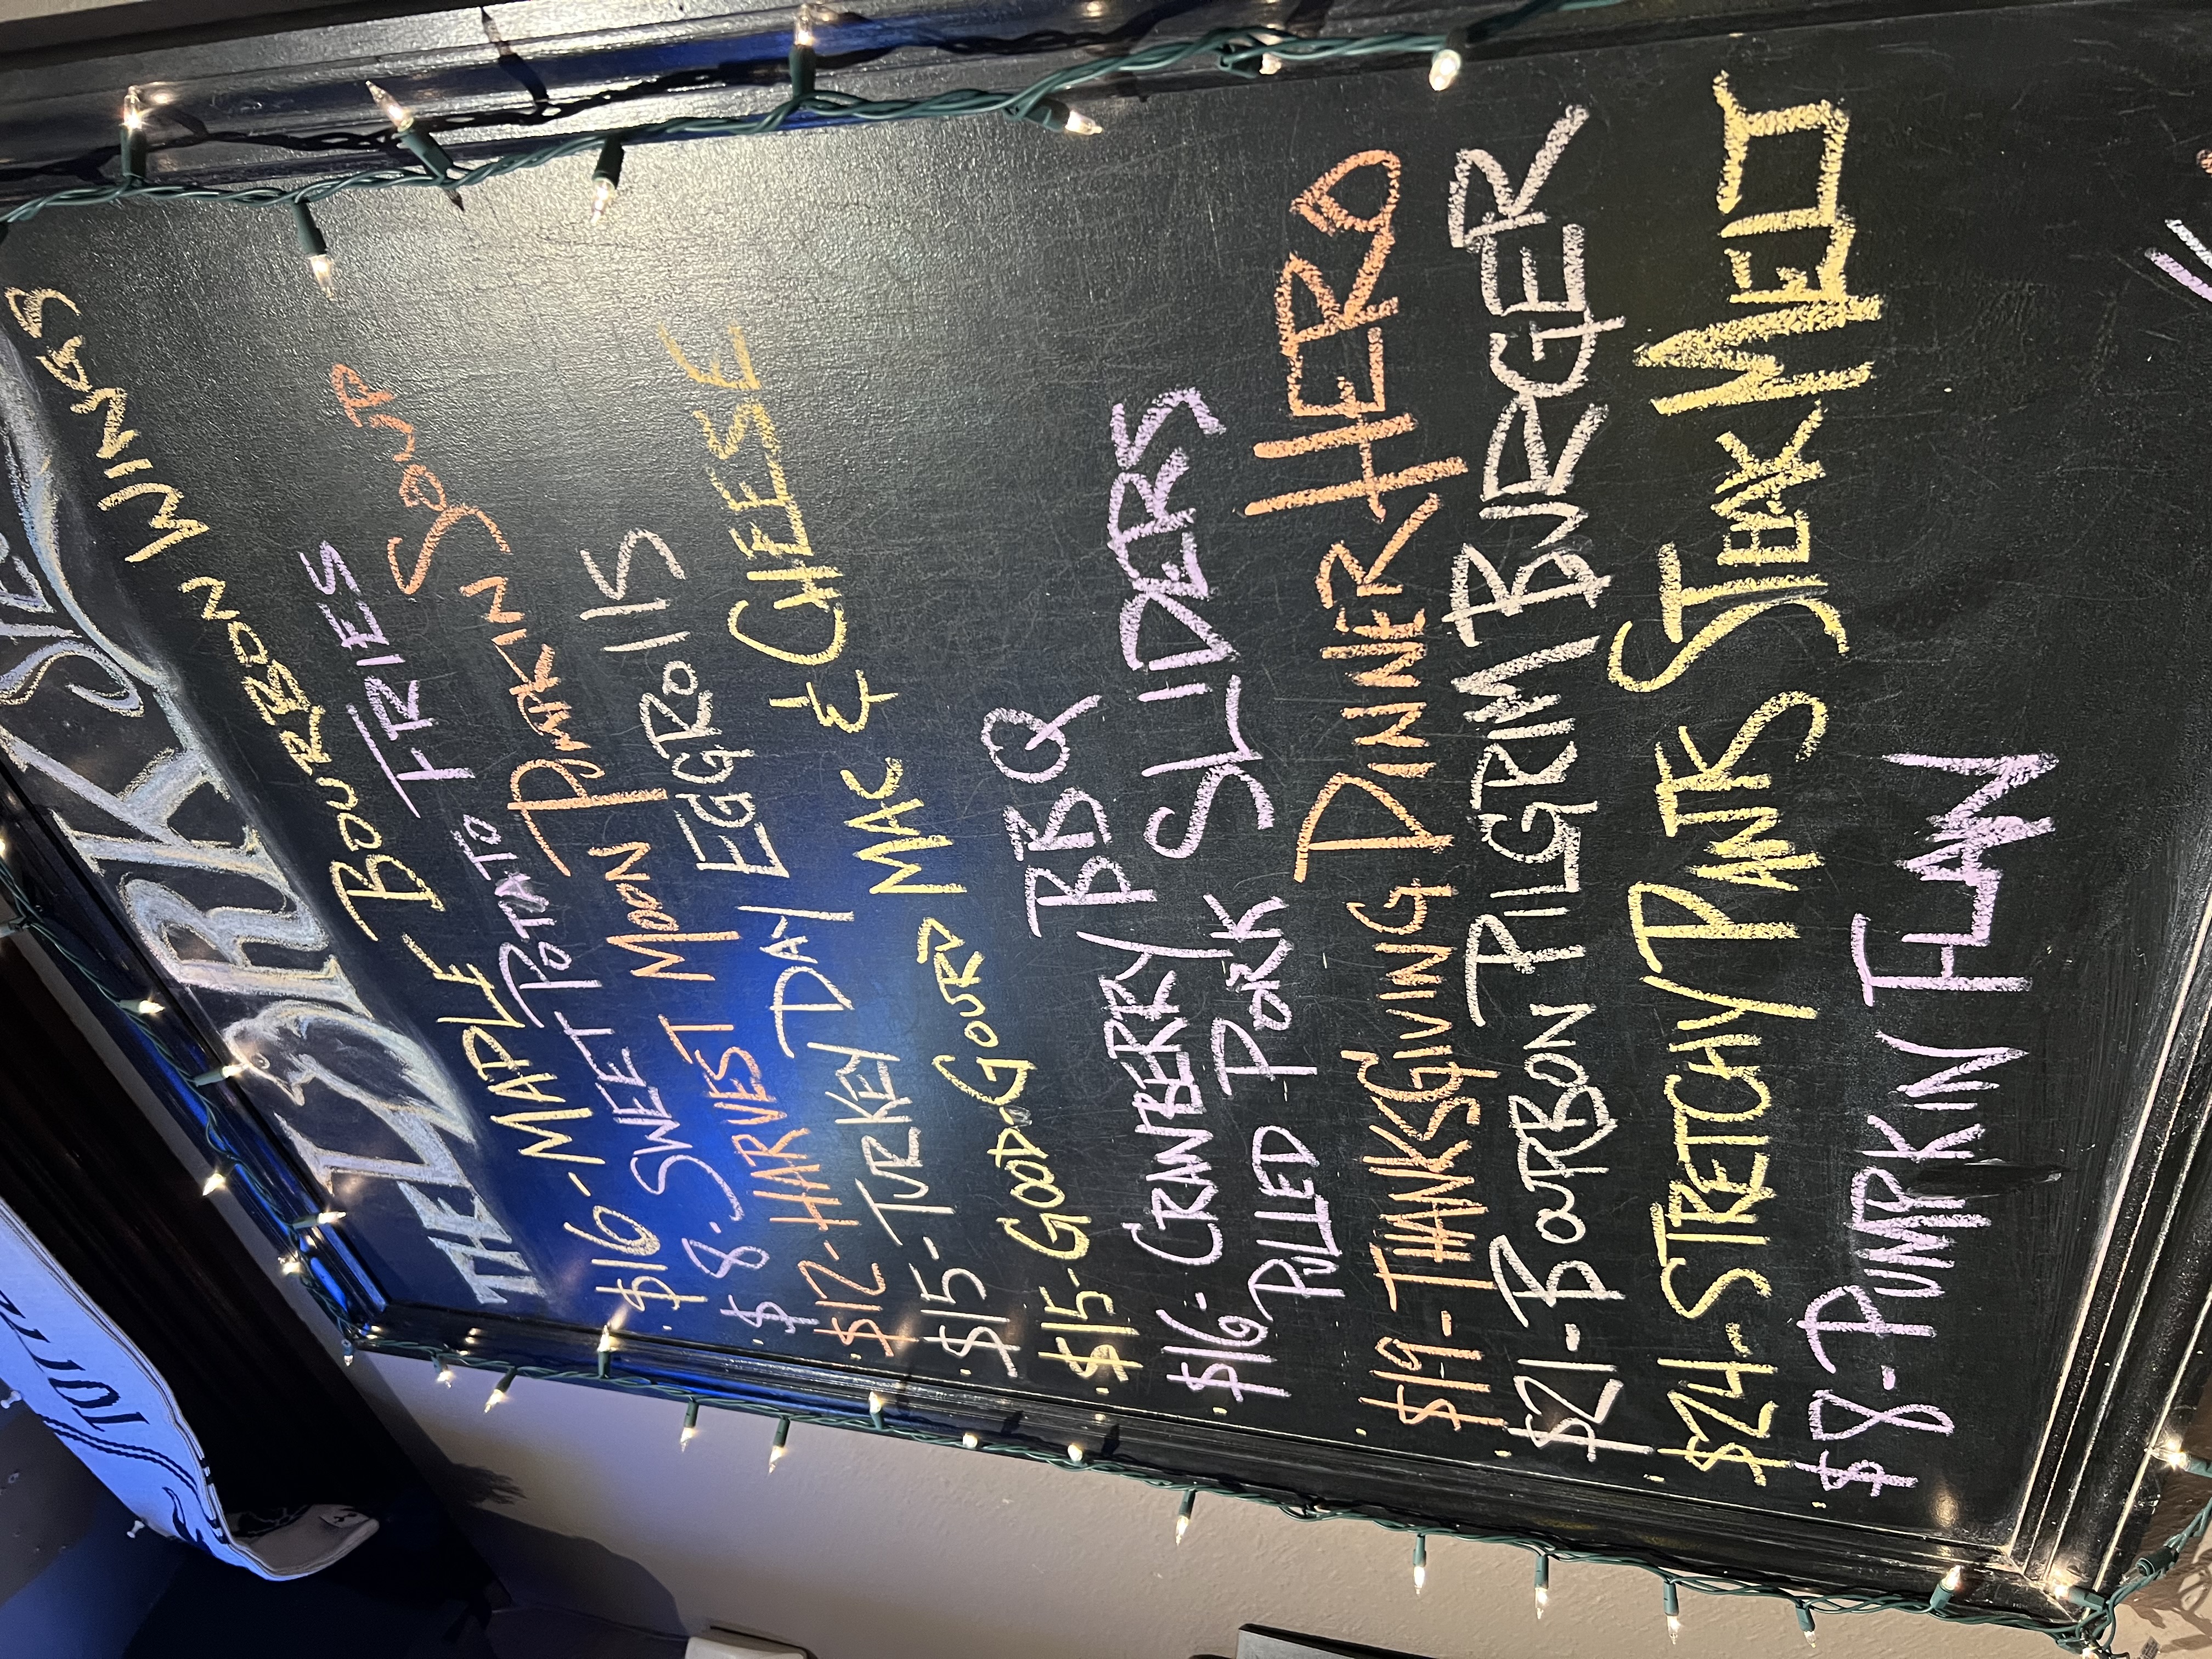 THE DARK SIDE
$16-MAPLE BOURBON WINGS
$8-SWEET POTATO FRIES
$12-HARVEST MOON PUMPKIN SOUP
$15-TURKEY DAY EGGROLLS
$15-GOOD GOURD MAC & CHEESE
$16-CRANBERRY BBQ
PULLED PORK SLIDERS
$19-THANKSGIVING DINNER HERO
$21-BOURBON PILGRIM BURGER
$24-STRETCHY PANTS STEAK MELT
$8-PUMPKIN FLAN